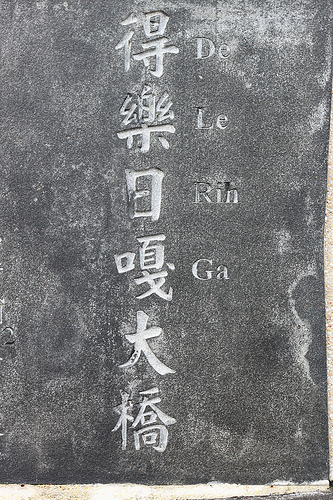 得樂日嘎大橋
De
Le
Rih
Ga